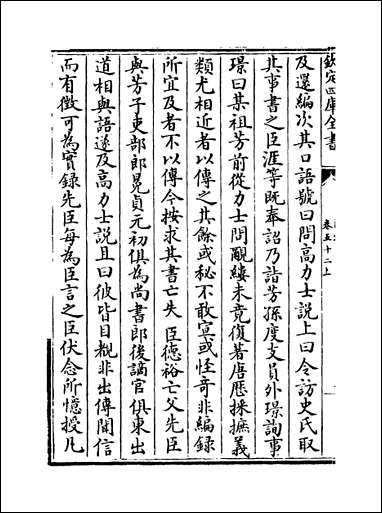 欽定四庫全書
卷五十二上
及還編次其口語號曰問高力士說上曰令訪史氏取
其事書之臣涯等既奉詔乃詣芳孫度支員外璟詢事
璟曰某祖芳前從力士問覼縷未竟復著唐歷採摭義
類尤相近者以傳之其餘或秘不敢宣或怪奇非編録
所宜及者不以傳今按求其書亡失 臣德裕亡父先臣
與芳子吏部郎冕貞元初俱為尚書郎後謫官俱東出
道相與語遂及高力士說且曰彼皆目覩非出傳聞信
而有徵可為實録先臣每為臣言之臣伏念所憶授凡